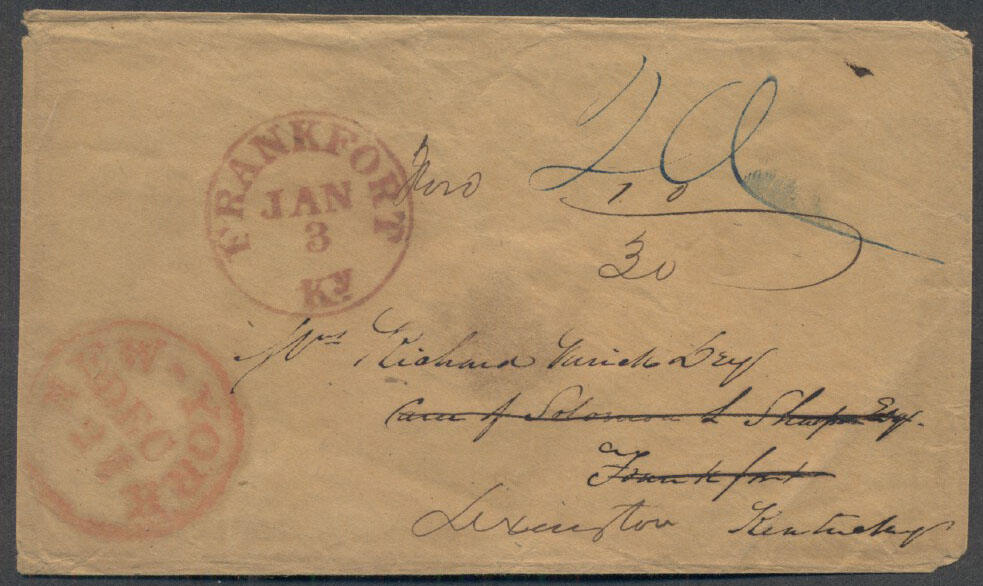 FRANKFORT
JAN
3
Ky.
20
Ford 10
30
NEW-YORK
DEC
27
Mrs Richard Varick Dey
Care of Solomon L Sharp Esqr.
Frankfort
Lexington Kentucky